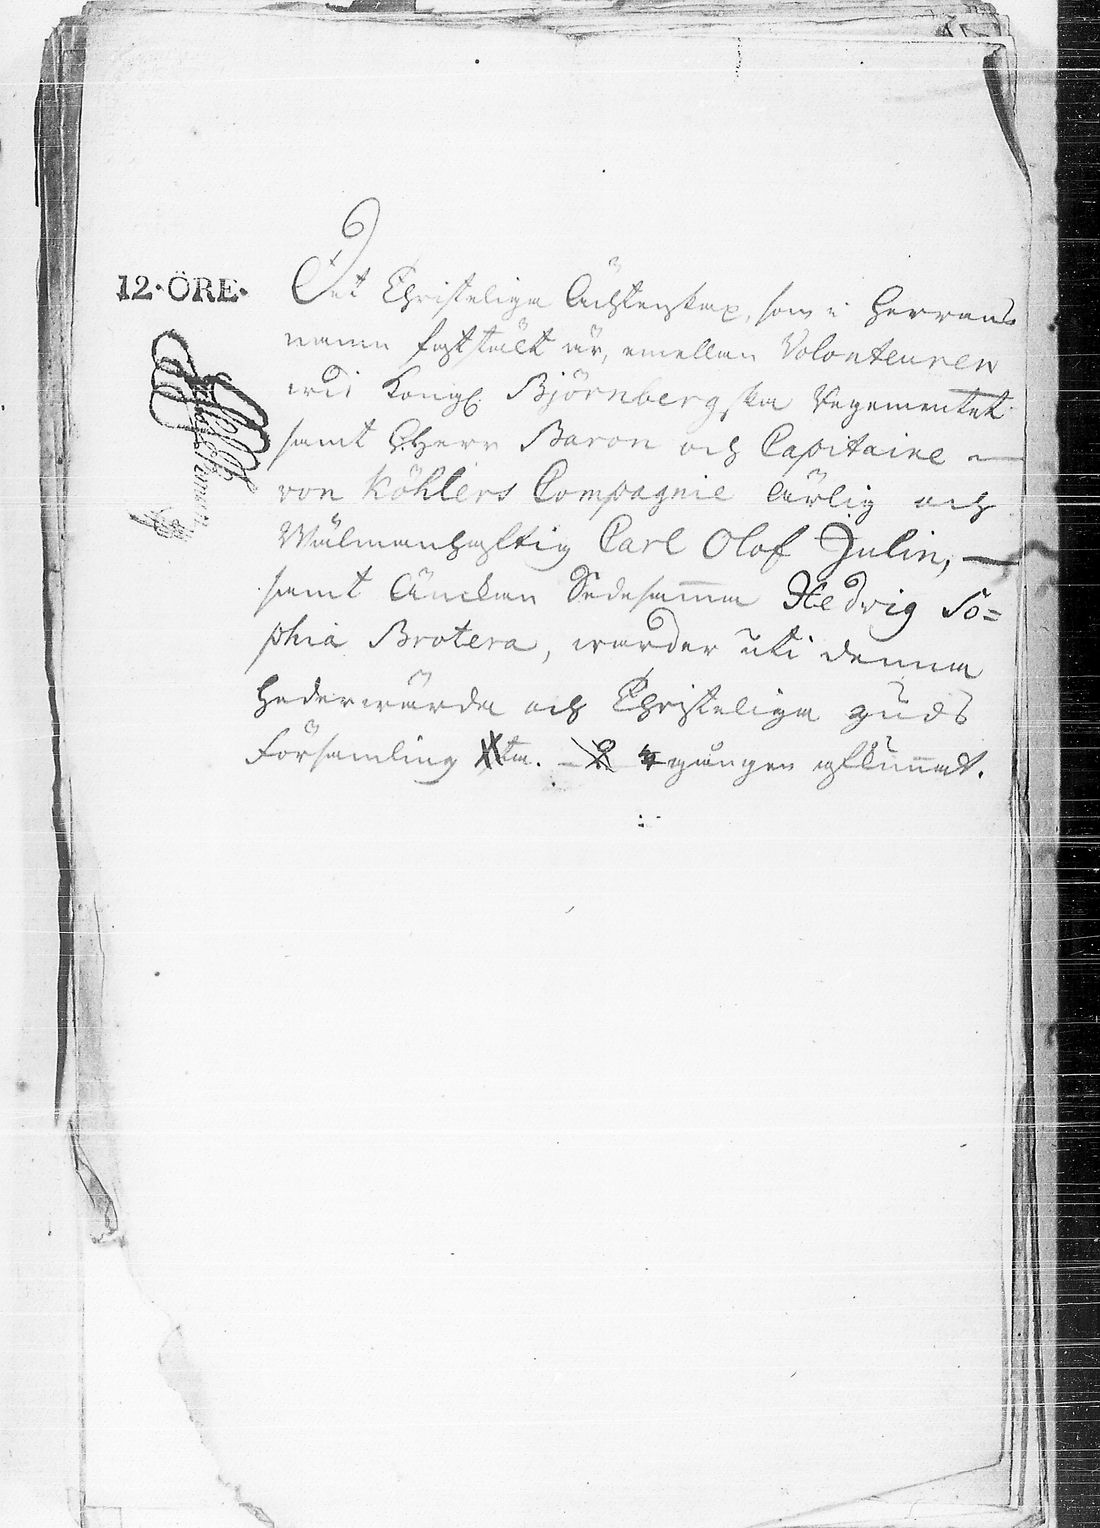 12·ÖRE·
Det Christeliga Ächtenskap, som i Herrans
namn fastställt är, emellan Volonteuren
wid Kongl. Björnbergska Regementet
samt HHerr Baron och Capitaine
von Köhlers Compagnie ärlig och
Wälmanhaftig Carl Olof Julin,
samt Änckan Dedesamma Hedwig So=
phia Brotera, warder uti denna
Hederwärda och Christeliga Guds
Församling gången aflÿsat.